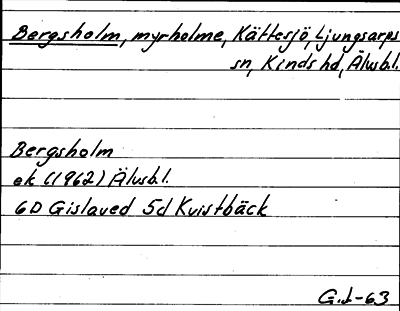 Bergsholm, myrholme, Kättesjö, Ljungsarps
sn, Kinds hd, Älvsb.l.
Bergsholm
ek (1962) Älvsb.l.
6D Gislaved 5d Kvistbäck
G.L-63